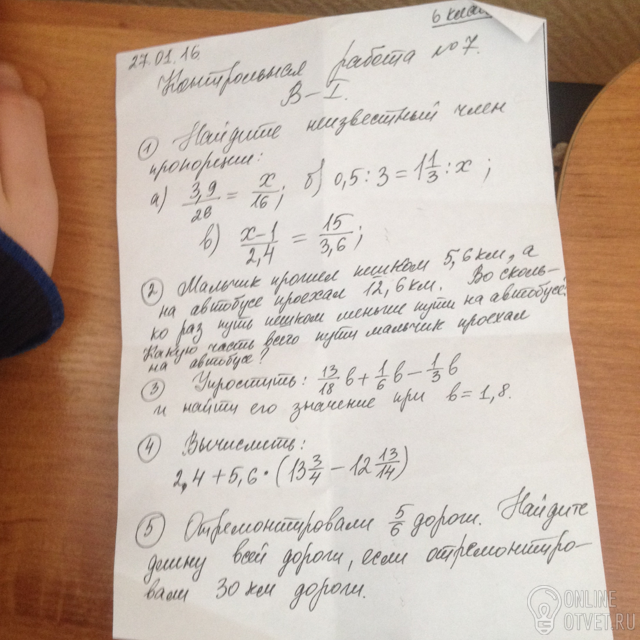 27.01.16.
6 класс
Контрольная работа №7.
В-I.
① Найдите неизвестный член
пропорции:
а) 3,9/26 = x/16; б) 0,5 : 3 = 1 1/3 : x;
в) x-1/2,4 = 15/3,6;
② Мальчик прошел пешком 5,6 км, а
на автобусе проехал 12,6 км. Во сколь-
ко раз путь пешком меньше пути на автобусе?
Какую часть всего пути мальчик проехал
на автобусе?
③ Упростить: 13/18 в + 1/6 в - 1/3 в
и найти его значение при в = 1,8.
④ Вычислить:
2,4 + 5,6 · (13 3/4 - 12 13/14)
⑤ Отремонтировали 5/6 дороги. Найдите
длину всей дороги, если отремонтиро-
вали 30 км дороги.
ONLINE
OTVET.RU